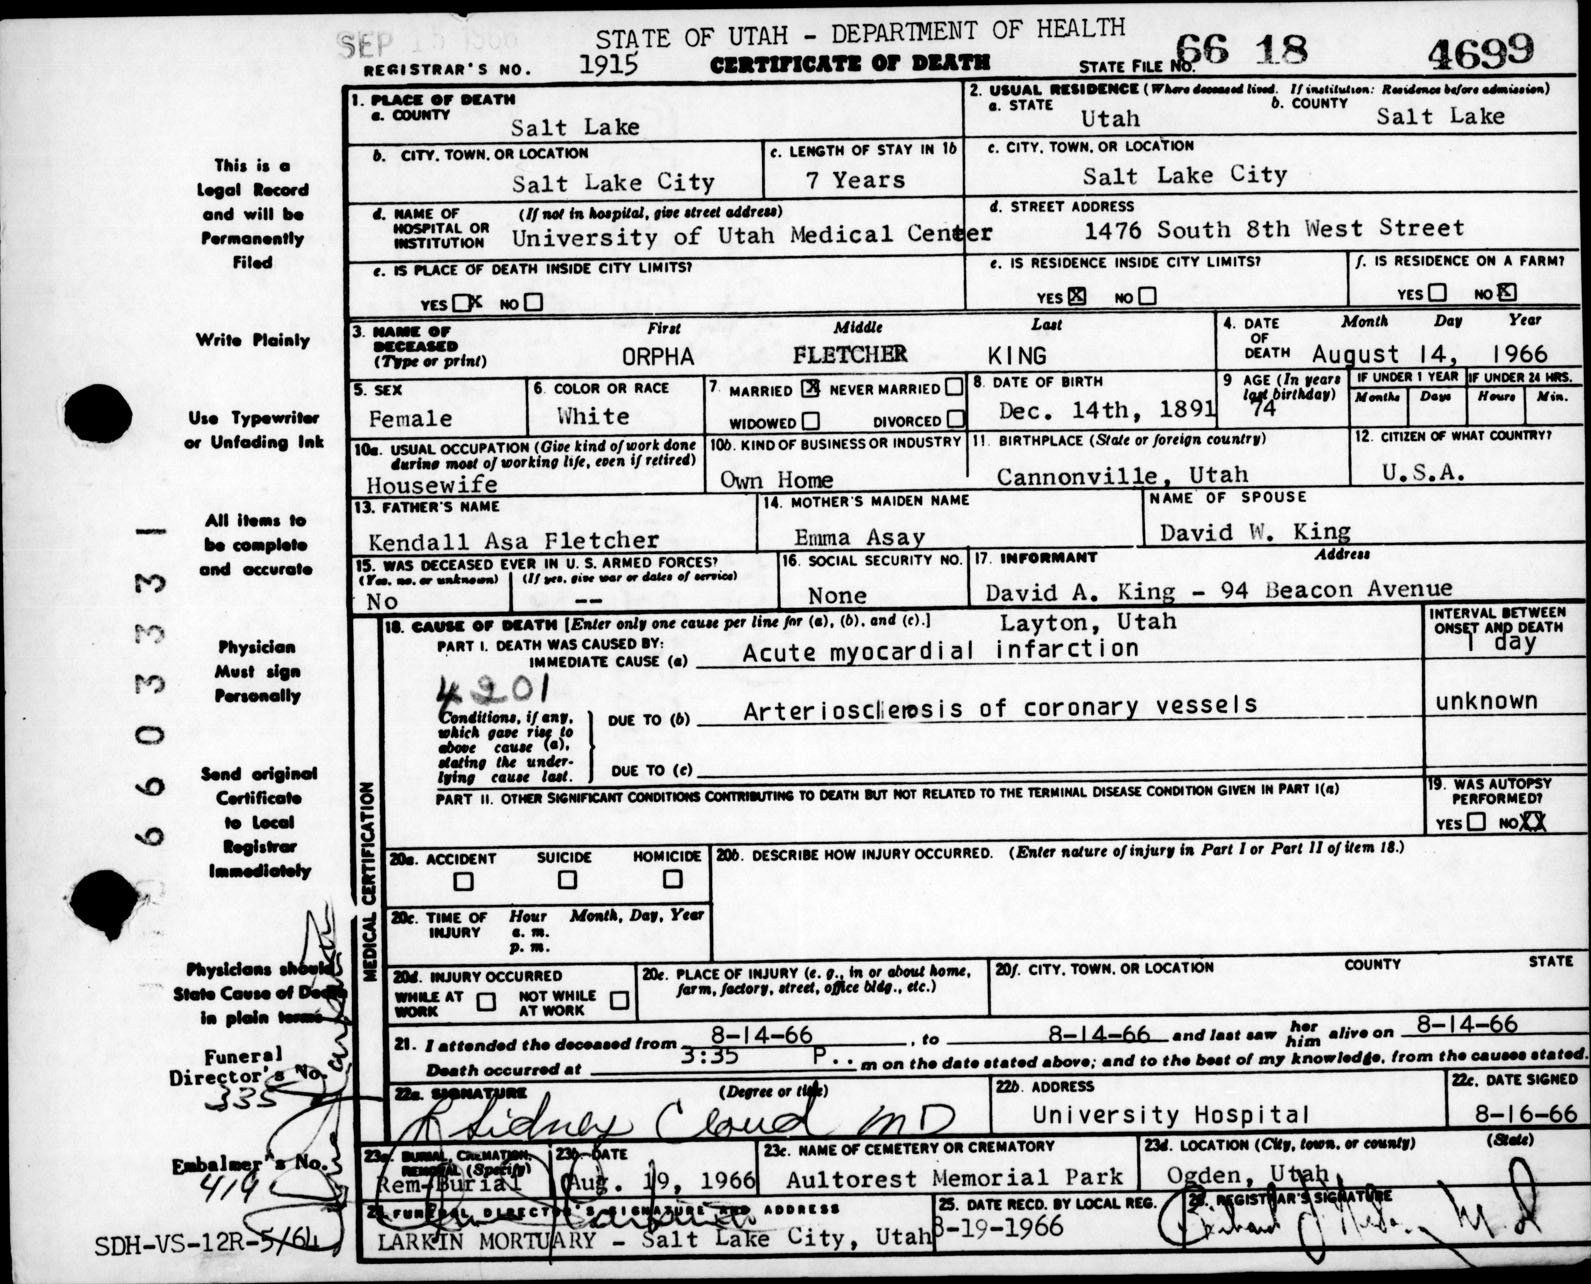 SEP 15 1966
STATE OF UTAH - DEPARTMENT OF HEALTH
REGISTRAR'S NO. 1915 CERTIFICATE OF DEATH STATE FILE NO. 66 18 4699
This is a
Legal Record
and will be
Permanently
Filed
Write Plainly
Use Typewriter
or Unfading Ink
All items to
be complete
and accurate
Physician
Must sign
Personally
Send original
Certificate
to Local
Registrar
Immediately
Physicians should
State Cause of Death
in plain terms
Funeral
Director's No.
335
Embalmer's No.
419
SDH-VS-12R-5/64
6603331
1. PLACE OF DEATH
a. COUNTY
Salt Lake
2. USUAL RESIDENCE (Where deceased lived. If institution: Residence before admission)
a. STATE
Utah
b. COUNTY
Salt Lake
b. CITY, TOWN, OR LOCATION
Salt Lake City
c. LENGTH OF STAY IN 1b
7 Years
c. CITY, TOWN, OR LOCATION
Salt Lake City
d. NAME OF HOSPITAL OR INSTITUTION (If not in hospital, give street address)
University of Utah Medical Center
d. STREET ADDRESS
1476 South 8th West Street
e. IS PLACE OF DEATH INSIDE CITY LIMITS?
YES X NO
e. IS RESIDENCE INSIDE CITY LIMITS?
YES X NO
f. IS RESIDENCE ON A FARM?
YES NO X
3. NAME OF DECEASED (Type or print)
First Middle Last
ORPHA FLETCHER KING
4. DATE OF DEATH
Month Day Year
August 14, 1966
5. SEX
Female
6. COLOR OR RACE
White
7. MARRIED X NEVER MARRIED
WIDOWED DIVORCED
8. DATE OF BIRTH
Dec. 14th, 1891
9 AGE (In years last birthday)
74
IF UNDER 1 YEAR
Months Days
IF UNDER 24 HRS.
Hours Min.
10a. USUAL OCCUPATION (Give kind of work done during most of working life, even if retired)
Housewife
10b. KIND OF BUSINESS OR INDUSTRY
Own Home
11. BIRTHPLACE (State or foreign country)
Cannonville, Utah
12. CITIZEN OF WHAT COUNTRY?
U.S.A.
13. FATHER'S NAME
Kendall Asa Fletcher
14. MOTHER'S MAIDEN NAME
Emma Asay
NAME OF SPOUSE
David W. King
15. WAS DECEASED EVER IN U. S. ARMED FORCES?
(Yes, no, or unknown) (If yes, give war or dates of service)
No --
16. SOCIAL SECURITY NO.
None
17. INFORMANT Address
David A. King - 94 Beacon Avenue
Layton, Utah
MEDICAL CERTIFICATION
18. CAUSE OF DEATH [Enter only one cause per line for (a), (b), and (c).]
INTERVAL BETWEEN ONSET AND DEATH
PART I. DEATH WAS CAUSED BY:
IMMEDIATE CAUSE (a) Acute myocardial infarction 1 day
4201
Conditions, if any, which gave rise to above cause (a), stating the underlying cause last.
DUE TO (b) Arteriosclerosis of coronary vessels unknown
DUE TO (c)
PART II. OTHER SIGNIFICANT CONDITIONS CONTRIBUTING TO DEATH BUT NOT RELATED TO THE TERMINAL DISEASE CONDITION GIVEN IN PART I(a)
19. WAS AUTOPSY PERFORMED?
YES NO XX
20a. ACCIDENT SUICIDE HOMICIDE
20b. DESCRIBE HOW INJURY OCCURRED. (Enter nature of injury in Part I or Part II of item 18.)
20c. TIME OF INJURY
Hour Month, Day, Year
a. m.
p. m.
20d. INJURY OCCURRED
WHILE AT WORK NOT WHILE AT WORK
20e. PLACE OF INJURY (e. g., in or about home, farm, factory, street, office bldg., etc.)
20f. CITY, TOWN, OR LOCATION COUNTY STATE
21. I attended the deceased from 8-14-66, to 8-14-66 and last saw her him alive on 8-14-66
Death occurred at 3:35 P..m on the date stated above; and to the best of my knowledge, from the causes stated.
22a. SIGNATURE (Degree or title)
Sidney Cloud MD
22b. ADDRESS
University Hospital
22c. DATE SIGNED
8-16-66
23a. BURIAL, CREMATION, REMOVAL (Specify)
Rem-Burial
23b. DATE
Aug. 19, 1966
23c. NAME OF CEMETERY OR CREMATORY
Aultorest Memorial Park
23d. LOCATION (City, town, or county) (State)
Ogden, Utah
24. FUNERAL DIRECTOR'S SIGNATURE AND ADDRESS
LARKIN MORTUARY - Salt Lake City, Utah
25. DATE RECD. BY LOCAL REG.
8-19-1966
26. REGISTRAR'S SIGNATURE